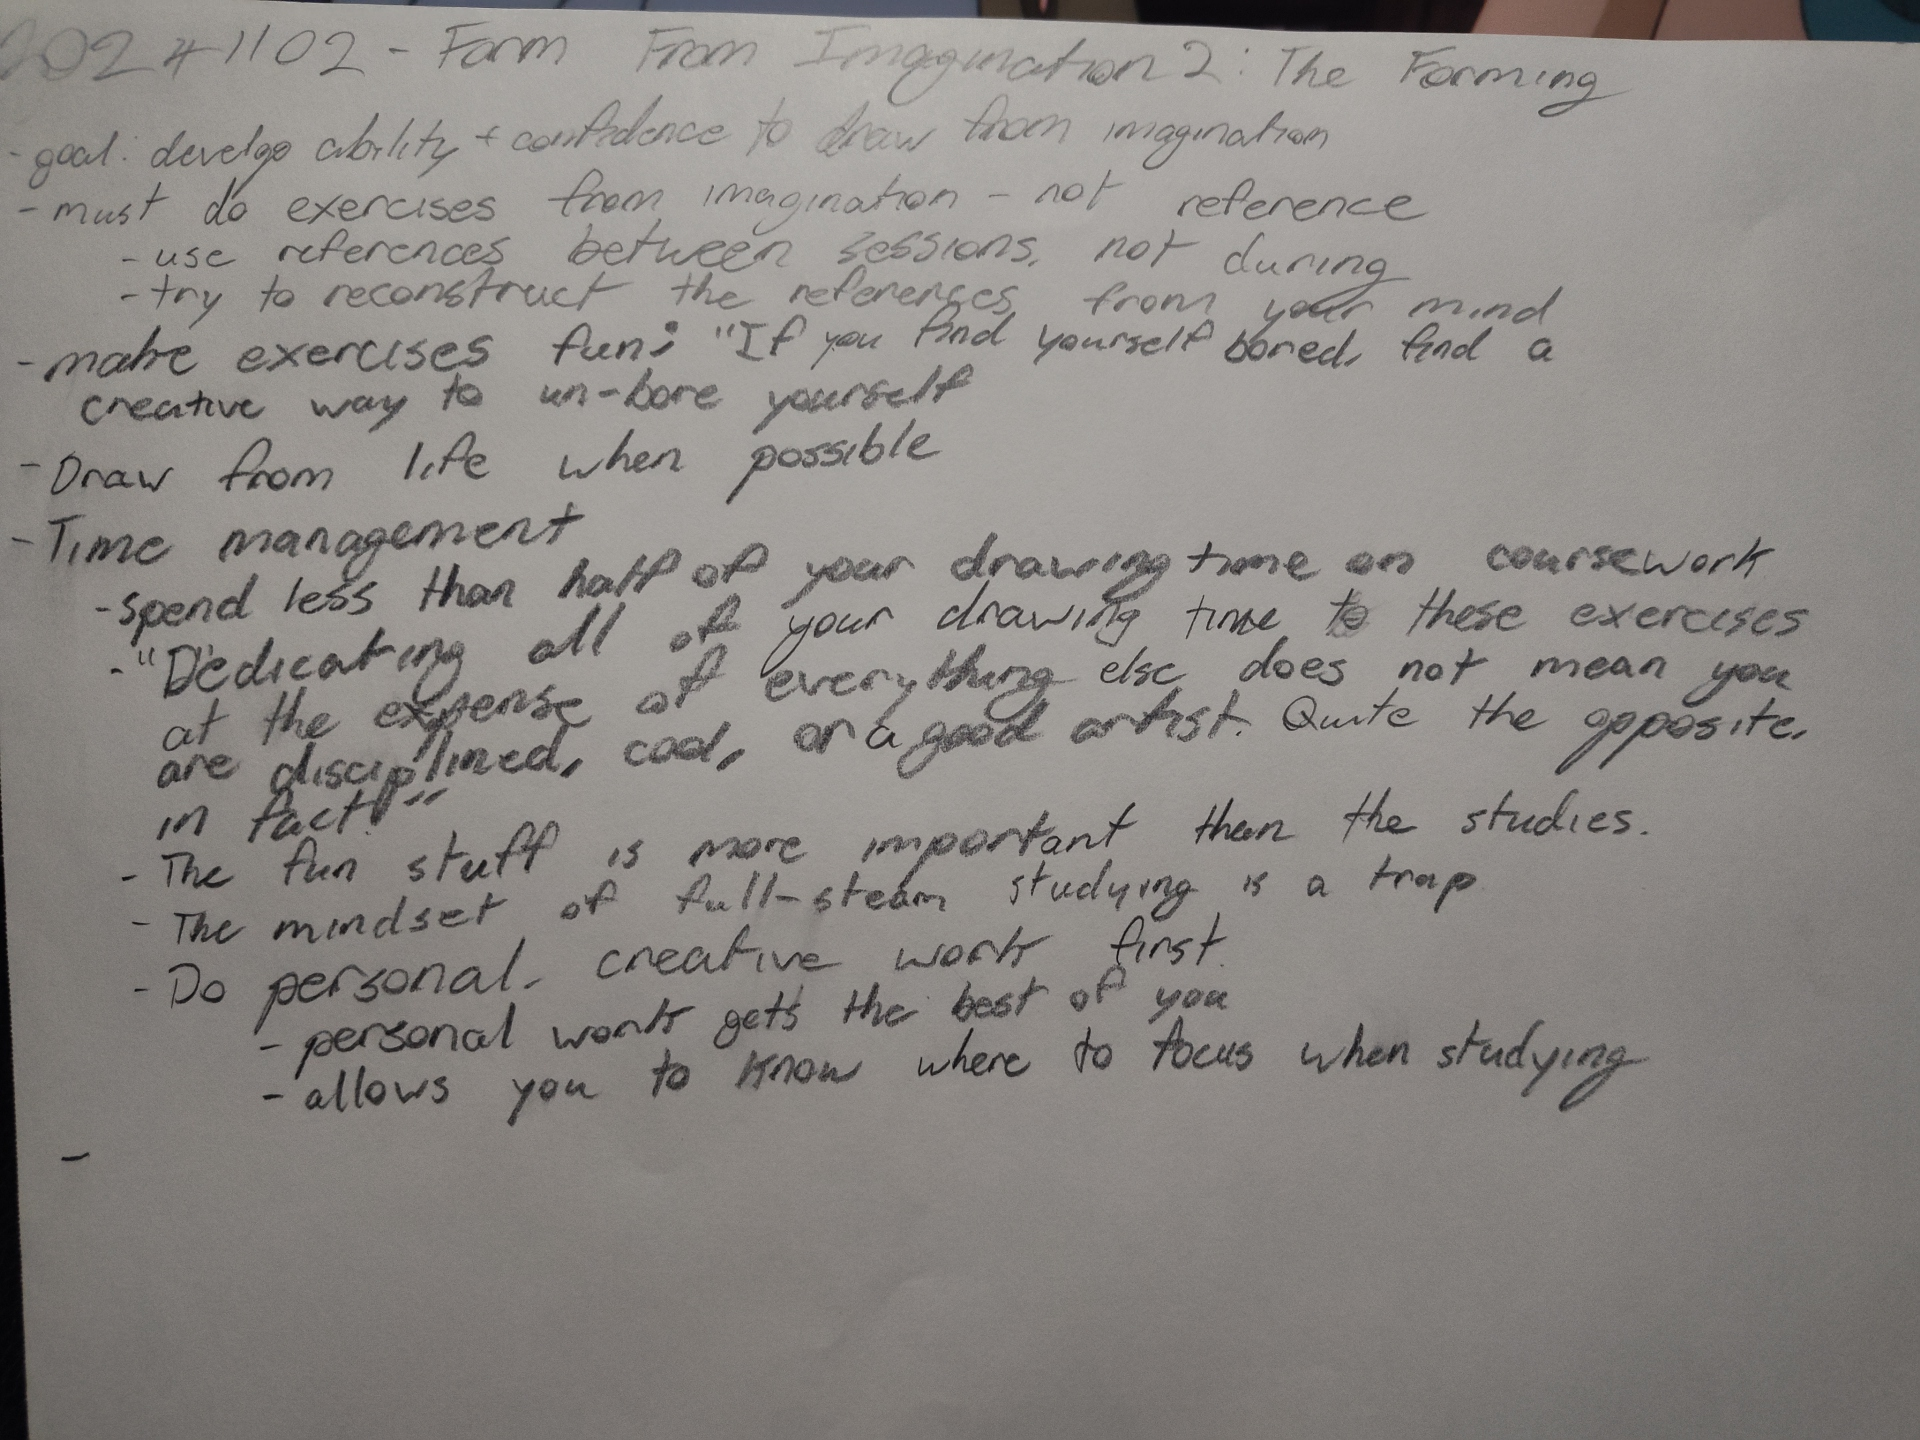 20241102 - Form From Imagination 2: The Forming
- goal: develop ability + confidence to draw from imagination
- must do exercises from imagination - not reference
- use references between sessions, not during
- try to reconstruct the references from your mind
- make exercises fun: "If you find yourself bored, find a
creative way to un-bore yourself
- Draw from life when possible
- Time management
- spend less than half of your drawing time on coursework
- "Dedicating all of your drawing time to these exercises
at the expense of everything else does not mean you
are disciplined, cool, or a good artist. Quite the opposite,
in fact!"
- The fun stuff is more important than the studies.
- The mindset of full-steam studying is a trap
- Do personal, creative work first.
- personal work gets the best of you
- allows you to know where to focus when studying
-